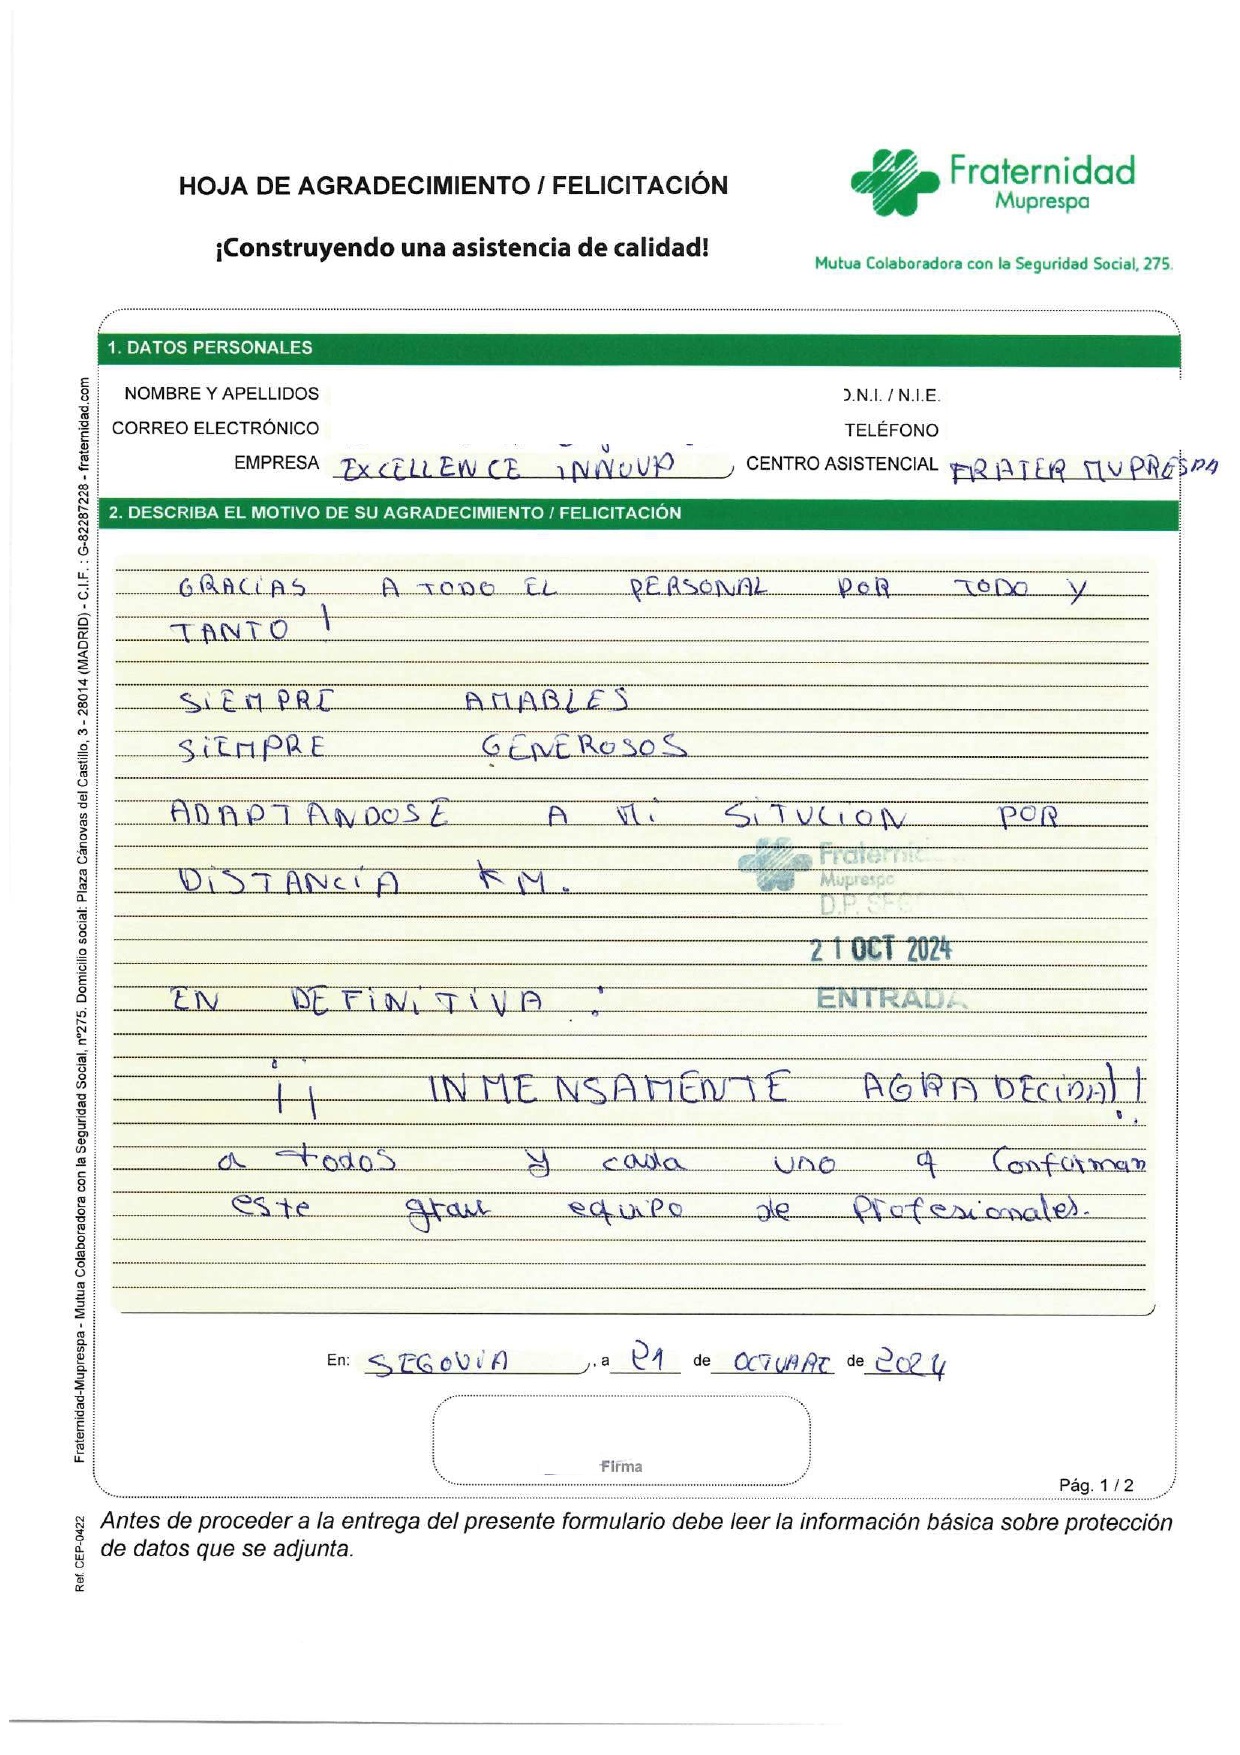 HOJA DE AGRADECIMIENTO / FELICITACIÓN
¡Construyendo una asistencia de calidad!
Fraternidad
Muprespa
Mutua Colaboradora con la Seguridad Social, 275.
1. DATOS PERSONALES
NOMBRE Y APELLIDOS
D.N.I. / N.I.E.
CORREO ELECTRÓNICO
TELÉFONO
EMPRESA EXCELLENCE INNOVA, CENTRO ASISTENCIAL FRATER MUPRESPA
2. DESCRIBA EL MOTIVO DE SU AGRADECIMIENTO / FELICITACIÓN
GRACIAS A TODO EL PERSONAL POR TODO Y
TANTO !
SIEMPRE AMABLES
SIEMPRE GENEROSOS
ADAPTANDOSE A MI SITUCION POR
DISTANCIA KM.
Fraternid
Muprespa
D.P. SEG
21 OCT 2024
ENTRADA
EN DEFINITIVA :
¡¡ INMENSAMENTE AGRADECIDA!!
a todos y cada uno q conforman
este gran equipo de profesionales.
En: SEGOVIA, a 21 de OCTUBRE de 2024
Firma
Pág. 1 / 2
Antes de proceder a la entrega del presente formulario debe leer la información básica sobre protección
de datos que se adjunta.
Fraternidad-Muprespa - Mutua Colaboradora con la Seguridad Social, nº275. Domicilio social: Plaza Cánovas del Castillo, 3 - 28014 (MADRID) - C.I.F. : G-82287228 - fraternidad.com
Ref. CEP-0422